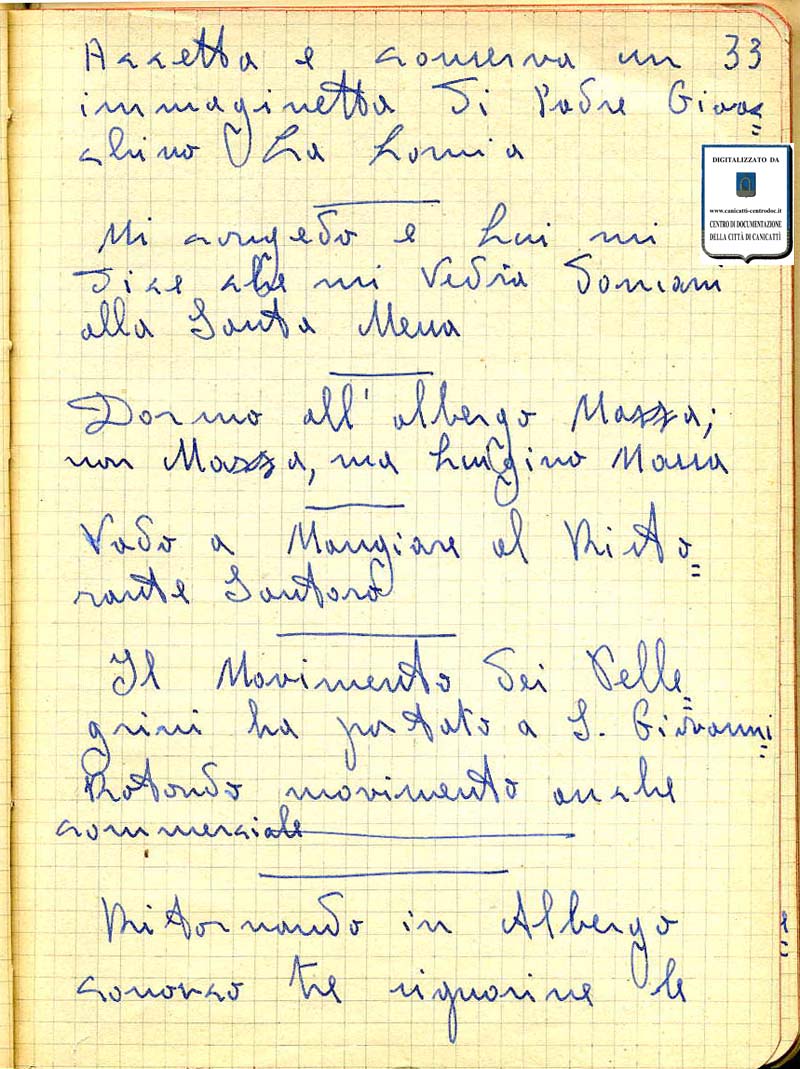 Accetta e conserva un 33
immaginetta di Padre Gioac=
chino La Lomia
Mi congedo e Lui mi
dice che mi vedrà domani
alla Santa Messa
Dormo all'albergo Mazza;
non Mazza, ma Luigino Massa
Vado a Mangiare al Risto=
rante Santoro
Il Movimento dei Pelle=
grini ha portato a S. Giovanni=
Rotondo movimento anche
commerciale
Ritornando in Albergo
conosco tre signorine le
DIGITALIZZATO DA
www.canicatti-centrodoc.it
CENTRO DI DOCUMENTAZIONE
DELLA CITTÀ DI CANICATTÌ